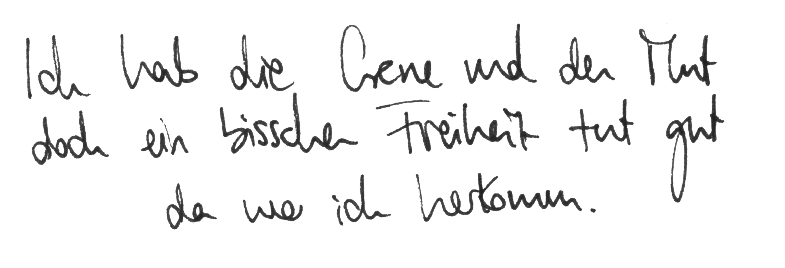 Ich hab die Gene und den Mut
doch ein bisschen Freiheit tut gut
da wo ich herkomm.